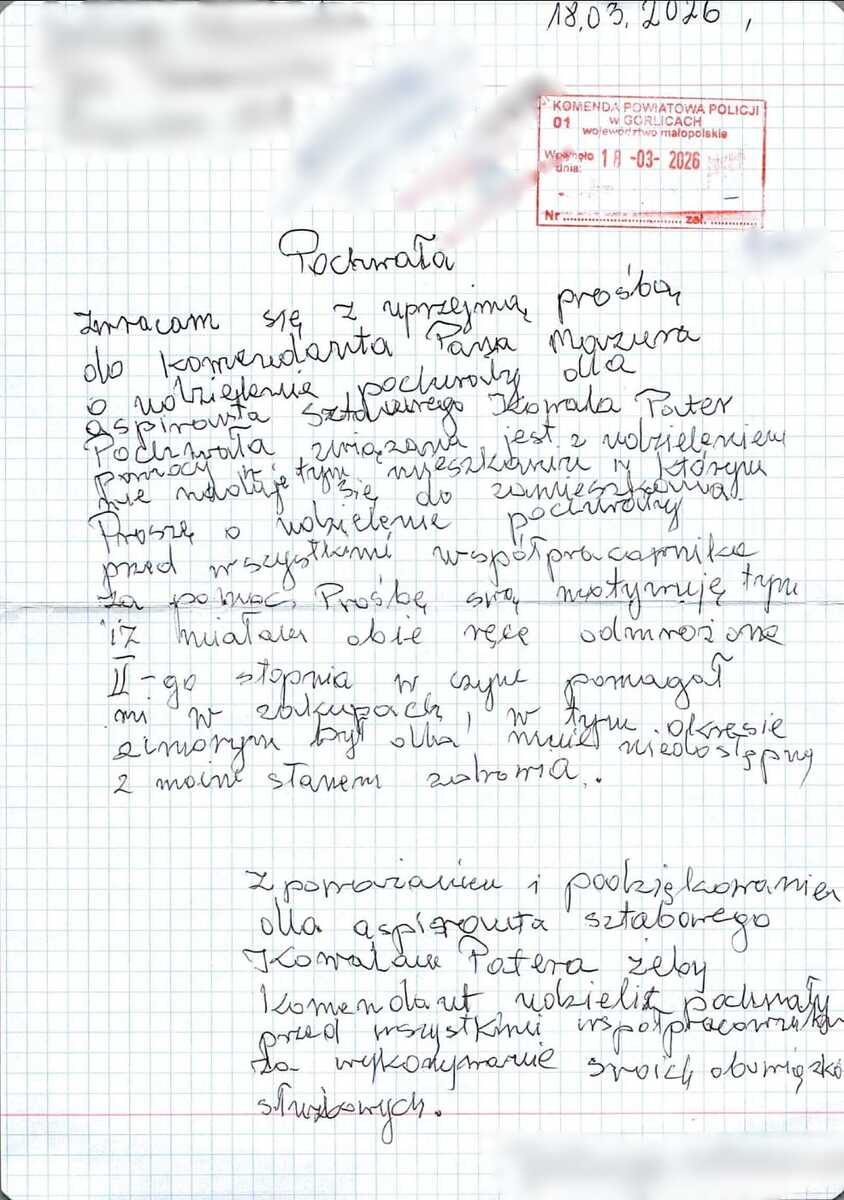 18.03.2026,
KOMENDA POWIATOWA POLICJI
01 w GORLICACH
województwo małopolskie
Wpłynęło dnia: 18 -03- 2026
Nr ........ zał. ........
Pochwała
Zwracam się z uprzejmią prośbą
do komendanta Pana Mazura
o udzielenie pochwały dla
aspiranta sztabowego Kowala Pater
Pochwała związana jest z udzieleniem
pomocy w tym mieszkaniu w którym
nie nadaje się do zamieszkowa.
Proszę o udzielenie pochwały
przed wszystkimi współpracownika
za pomoc. Prośbę swą motywuję tym
iż miałam obie ręce odmrożone
II-go stopnia w czym pomagał
mi w zakupach, w tym okresie
zimowym był dla mnie niedostępny
z moim stanem zdrowia..
Z poważaniem i podziękowaniem
dla aspiranta sztabowego
Kowalam Patera żeby
Komendant udzielił pochwały
przed wszystkimi współpracownikam
za wykonywanie swoich obowiązkó
służbowych.